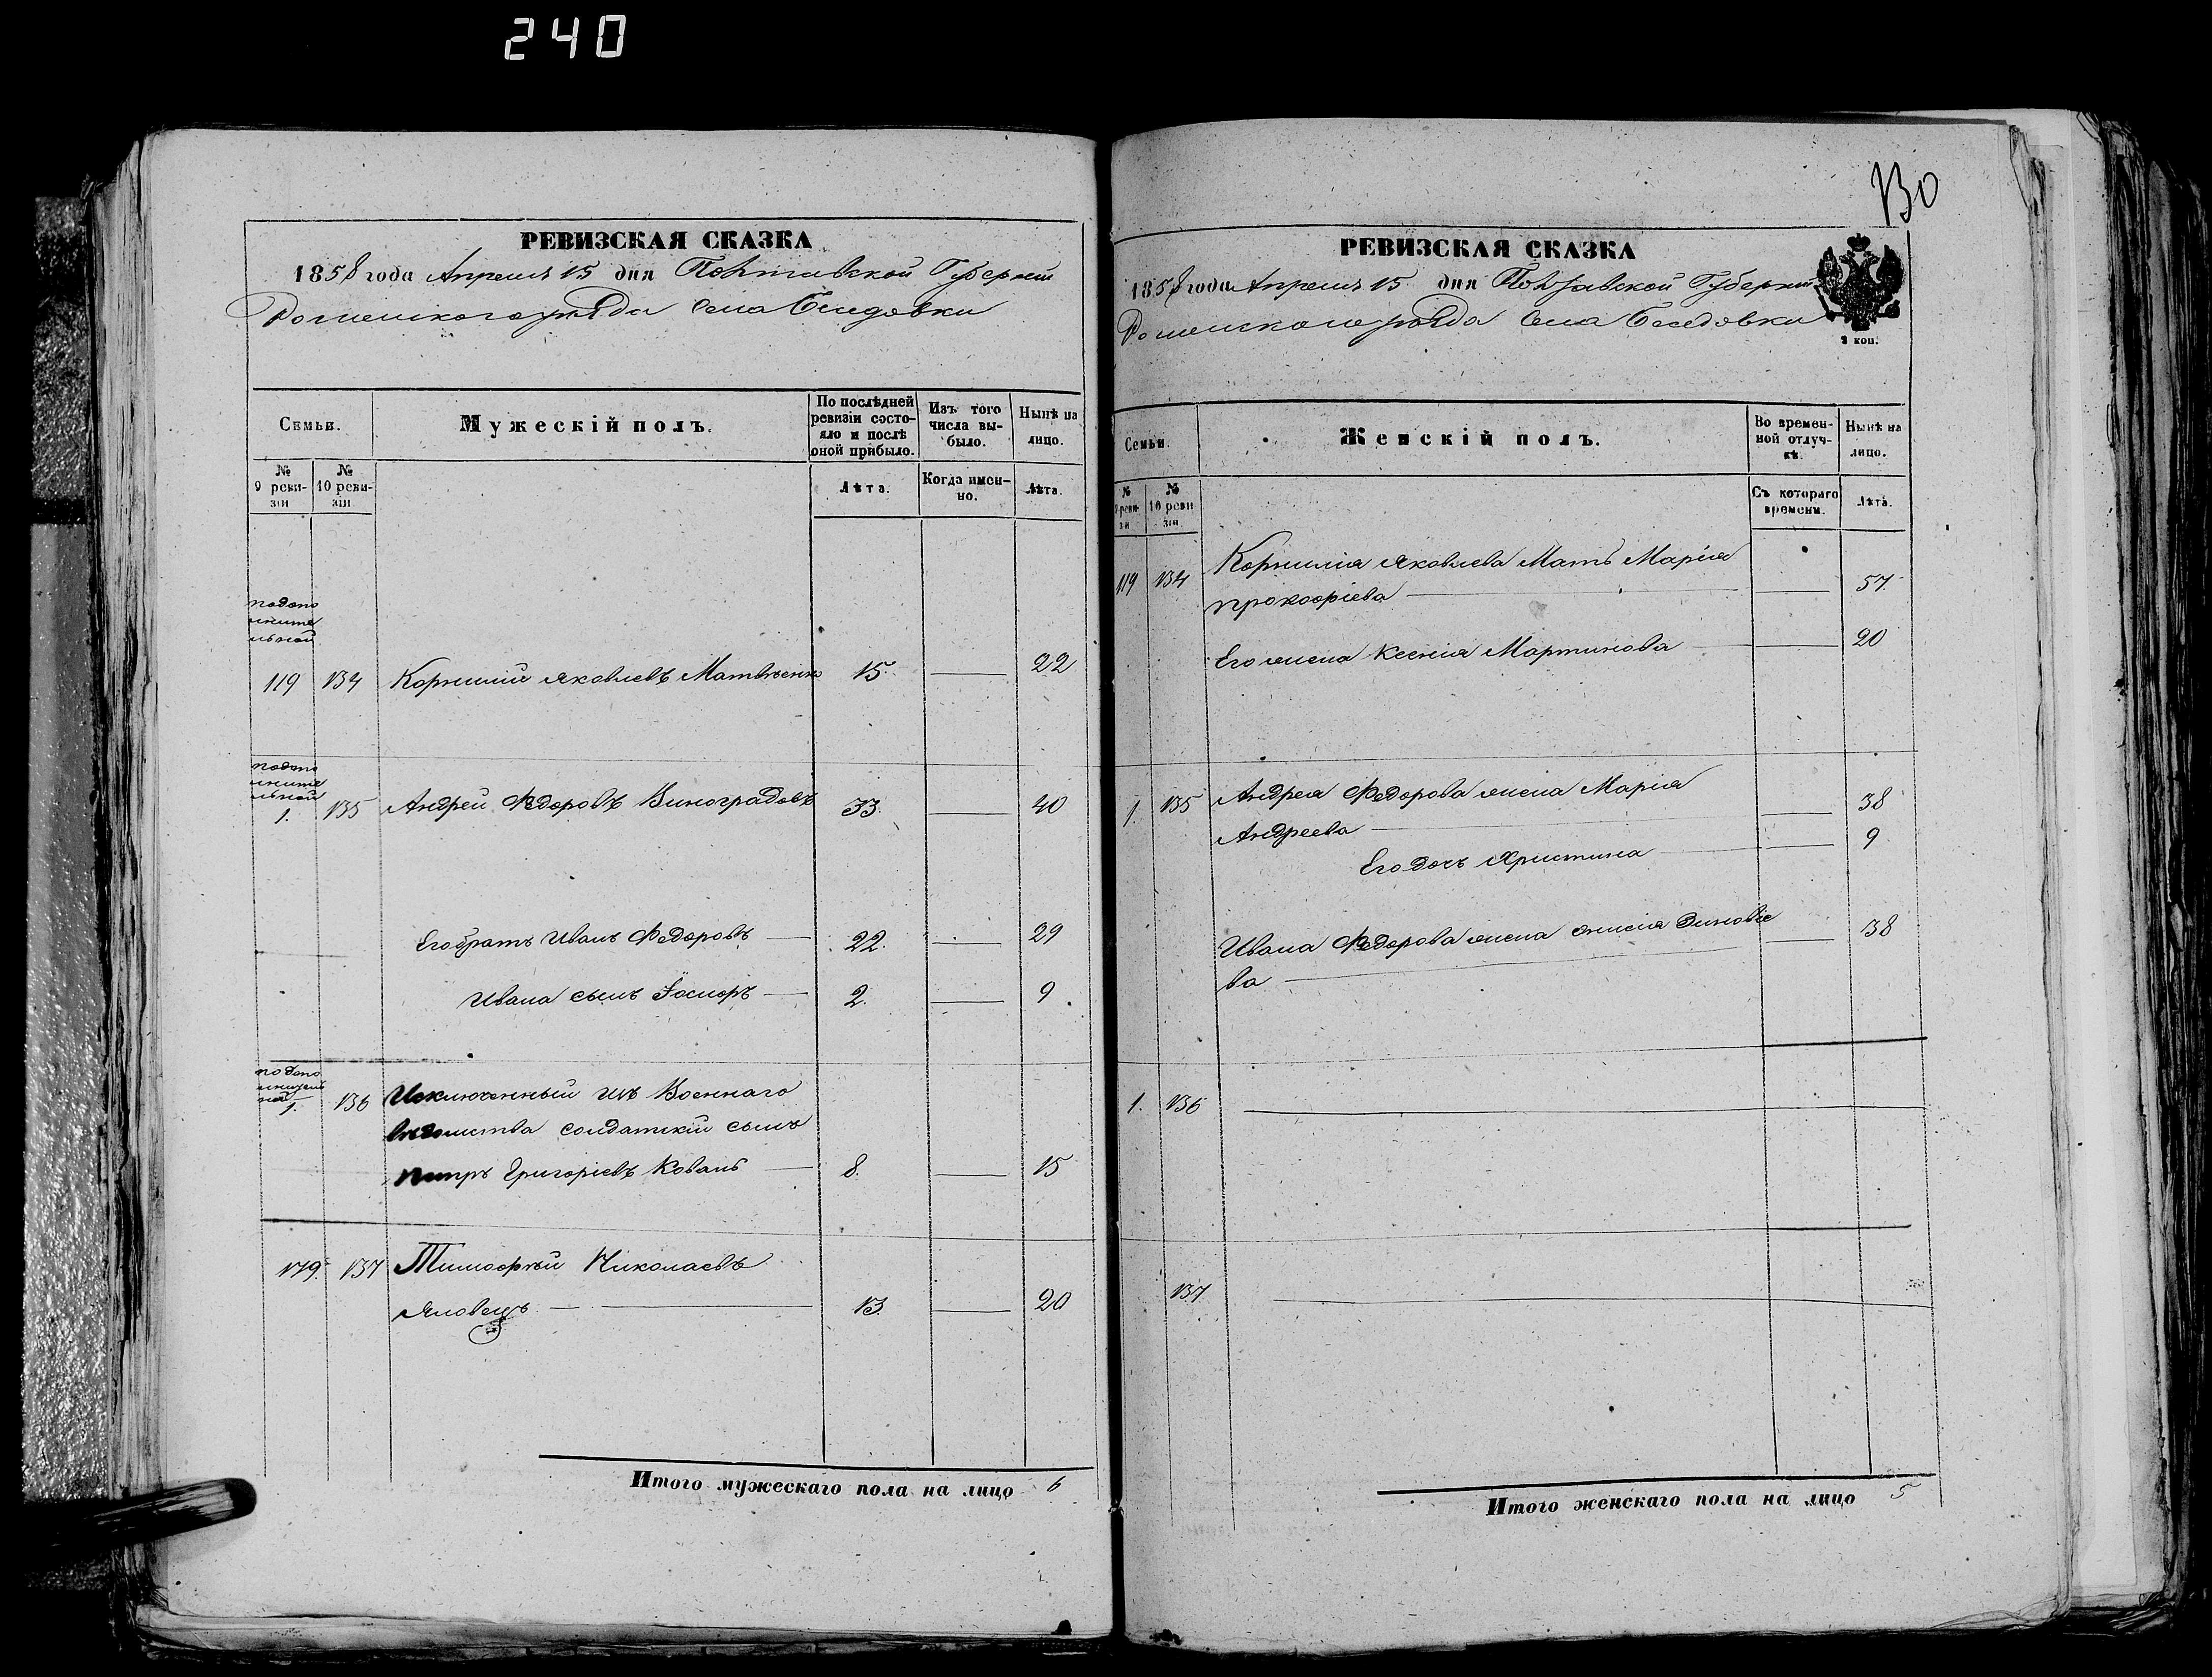 240
РЕВИЗСКАЯ СКАЗКА
1858 года Апреля 15 дня Полтавской Губернiи
Роменского уѣзда Села Беседовки
Семьи.
Мужескій полъ.
По послѣдней ревизіи состояло и послѣ оной прибыло.
Изъ того числа выбыло.
Нынѣ на лицо.
№ 9 ревизіи
№ 10 ревизіи
Лѣта.
Когда именно.
Лѣта.
по допо
лните
льной
119 134 Корнилий Яковлевъ Матвѣенко 15. 22
по допо
лните
льной
1. 135 Андрей Федоровъ Виноградовъ 33. 40
Его братъ Иванъ Федоровъ 22. 29
Ивана сынъ 2. 9.
по допо
лнитель
ной
1. 136 Исключенный изъ Военнаго
вѣдомства солдатскій сынъ
Петръ Григоріевъ Коваль 8. 15
179. 137 Тимофѣй Николаевъ
Яловецъ 13. 20
Итого мужескаго пола на лицо 6
130
РЕВИЗСКАЯ СКАЗКА
1858 года Апреля 15 дня Полтавской Губерніи
Роменского уѣзда Села Беседовки
2 коп.
Семьи.
Женскій полъ.
Во временной отлучкѣ.
Нынѣ на лицо.
№ 9 ревизіи
№ 10 ревизіи
Съ котораго времени.
Лѣта.
119 134 Корнилія Яковлева Мать Марія
Прокофіева 57.
Его жена Ксенія Мартинова 20
1. 135 Андрея Федорова жена Марія
Андреева 38
Его дочь Христина 9
Ивана Федорова жена Зиновіе
ва 38
1. 136
137
Итого женскаго пола на лицо 5